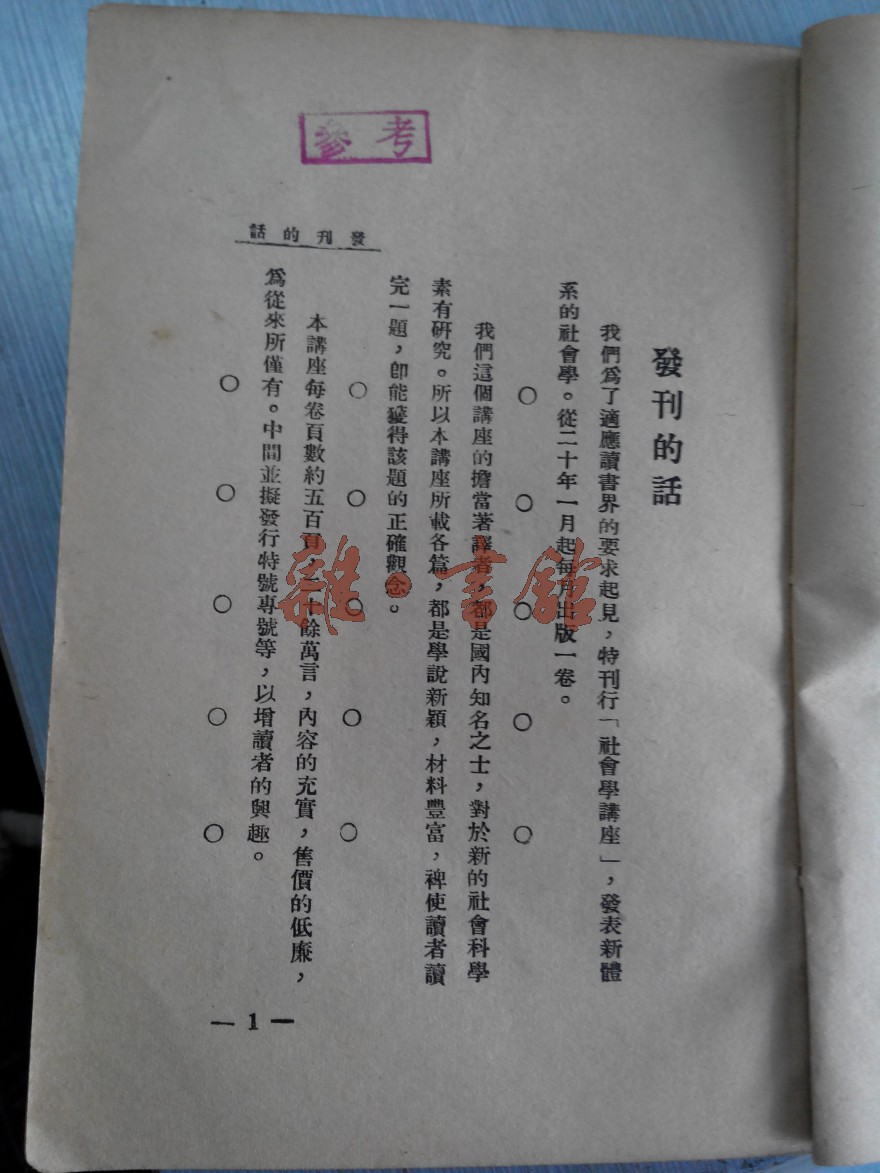 參考
話的刊發
發刊的話
我們爲了適應讀書界的要求起見，特刊行「社會學講座」，發表新體
系的社會學。從二十年一月起每月出版一卷。
○○○○○
我們這個講座的擔當著譯者，都是國內知名之士，對於新的社會科學
素有研究。所以本講座所載各篇，都是學說新穎，材料豐富，裨使讀者讀
完一題，卽能獲得該題的正確觀念。
○○○○○
本講座每卷頁數約五百頁，二十餘萬言，內容的充實，售價的低廉，
爲從來所僅有。中間並擬發行特號專號等，以增讀者的興趣。
○○○○○
— 1 —
雜·書館